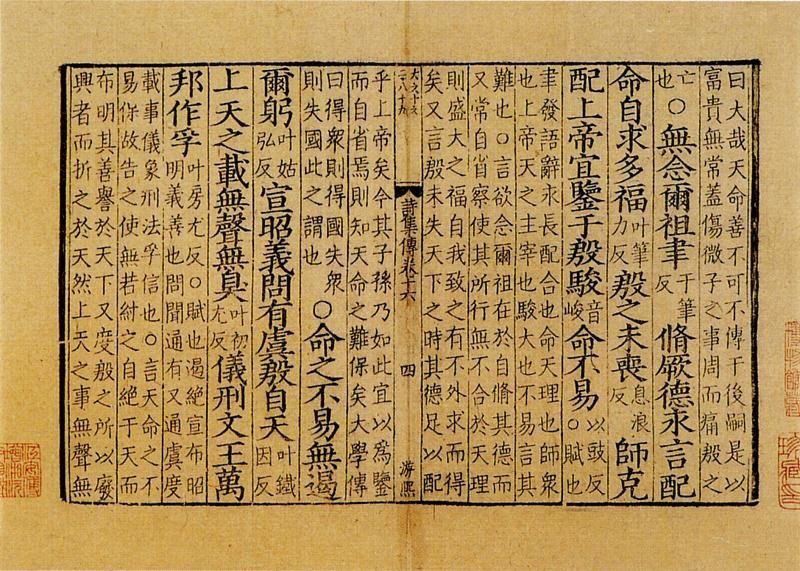 曰大哉天命善不可不傳于後嗣是以
富貴無常蓋傷微子之事周而痛殷之
亡也○無念爾祖聿于筆反脩厥德永言配
命自求多福叶筆力反殷之未喪息浪反師克
配上帝宜鑒于殷駿音峻命不易以豉反○賦也
聿發語辭永長配合也命天理也師衆
也上帝天之主宰也駿大也不易言其
難也○言欲念爾祖在於自脩其德而
又常自省察使其所行無不合於天理
則盛大之福自我致之有不外求而得
矣又言殷未失天下之時其德足以配
詩集傳卷十六
四
游熙
乎上帝矣今其子孫乃如此宜以爲鑒
而自省焉則知天命之難保矣大學傳
曰得衆則得國失衆則失國此之謂也○命之不易無遏
爾躬叶姑弘反宣昭義問有虞殷自天叶鐵因反
上天之載無聲無臭叶初尤反儀刑文王萬
邦作孚叶房尤反○賦也遏絕宣布昭明義善也問聞通有又通虞度
載事儀象刑法孚信也○言天命之不
易保故告之使無若紂之自絕于天而
布明其善譽於天下又度殷之所以廢
興者而折之於天然上天之事無聲無